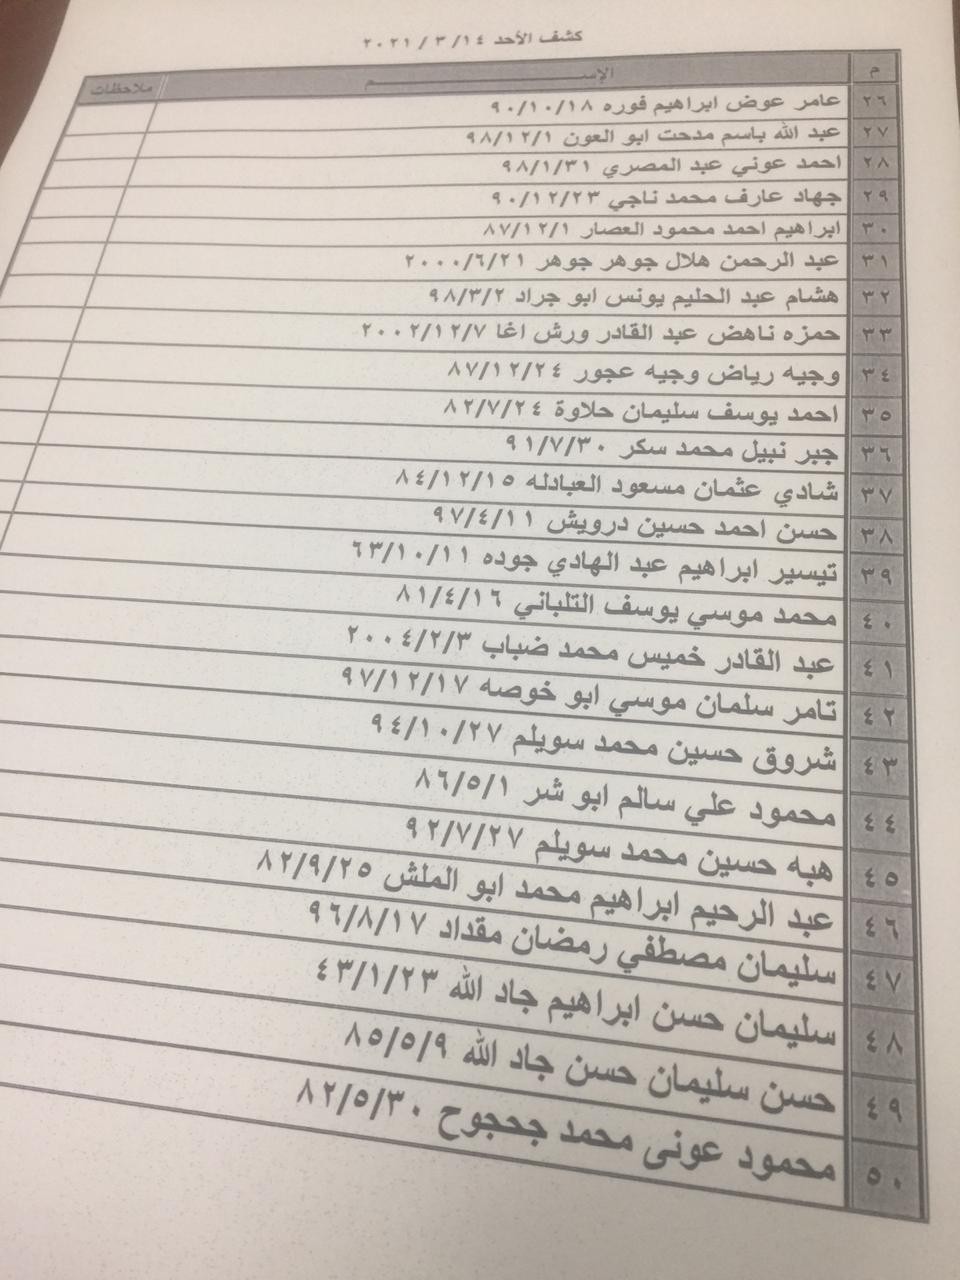 كشف الأحد ١٤/ ٣ / ٢٠٢١
م الإســـــــــم ملاحظات
٢٦ عامر عوض ابراهيم فوره ٩٠/١٠/١٨
٢٧ عبد الله باسم مدحت ابو العون ٩٨/١٢/١
٢٨ احمد عوني عبد المصري ٩٨/١/٣١
٢٩ جهاد عارف محمد ناجي ٩٠/١٢/٢٣
٣٠ ابراهيم احمد محمود العصار ٨٧/١٢/١
٣١ عبد الرحمن هلال جوهر جوهر ٢٠٠٠/٦/٢١
٣٢ هشام عبد الحليم يونس ابو جراد ٩٨/٣/٢
٣٣ حمزه ناهض عبد القادر ورش اغا ٢٠٠٢/١٢/٧
٣٤ وجيه رياض وجيه عجور ٨٧/١٢/٢٤
٣٥ احمد يوسف سليمان حلاوة ٨٢/٧/٢٤
٣٦ جبر نبيل محمد سكر ٩١/٧/٣٠
٣٧ شادي عثمان مسعود العبادله ٨٤/١٢/١٥
٣٨ حسن احمد حسين درويش ٩٧/٤/١١
٣٩ تيسير ابراهيم عبد الهادي جوده ٦٣/١٠/١١
٤٠ محمد موسي يوسف التلباني ٨١/٤/١٦
٤١ عبد القادر خميس محمد ضباب ٢٠٠٤/٢/٣
٤٢ تامر سلمان موسي ابو خوصه ٩٧/١٢/١٧
٤٣ شروق حسين محمد سويلم ٩٤/١٠/٢٧
٤٤ محمود علي سالم ابو شر ٨٦/٥/١
٤٥ هبه حسين محمد سويلم ٩٢/٧/٢٧
٤٦ عبد الرحيم ابراهيم محمد ابو الملش ٨٢/٩/٢٥
٤٧ سليمان مصطفي رمضان مقداد ٩٦/٨/١٧
٤٨ سليمان حسن ابراهيم جاد الله ٤٣/١/٢٣
٤٩ حسن سليمان حسن جاد الله ٨٥/٥/٩
٥٠ محمود عونى محمد جحجوح ٨٢/٥/٣٠